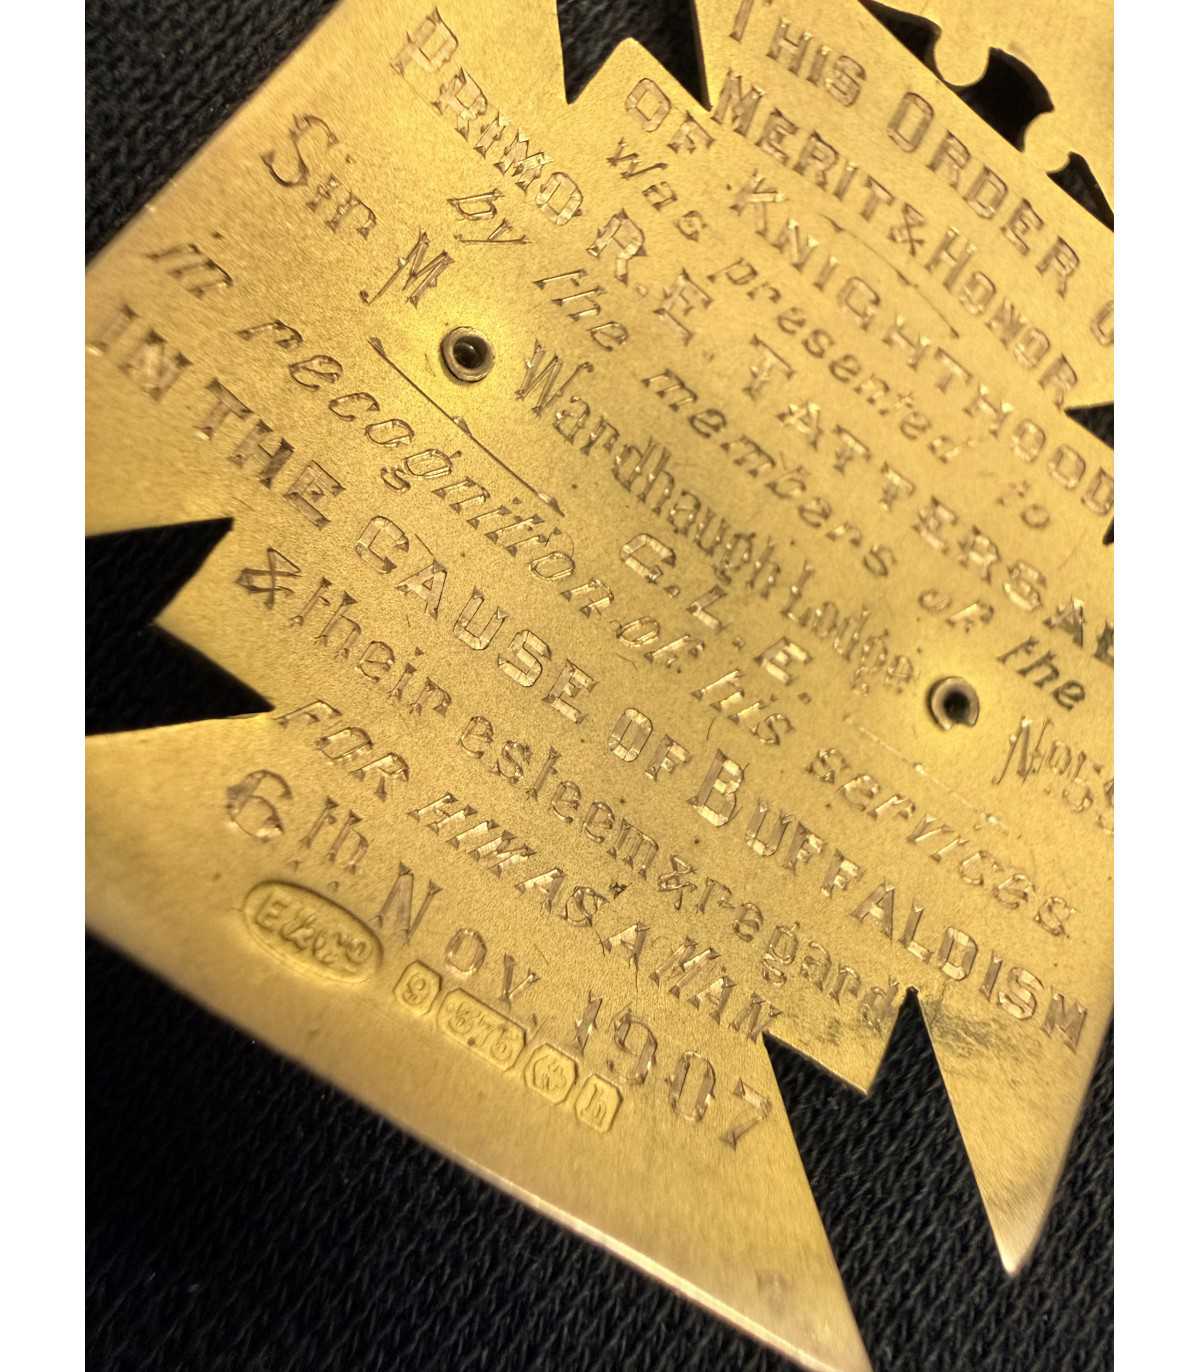 THIS ORDER O
MERIT & HONOR
OF KNIGHTHOOD
was presented to
PRIMO R.E. TATTERSAL
by the members of the
Sir M Wardhaugh Lodge No 59
G.L.E.
in recognition of his services
IN THE CAUSE OF BUFFALOISM
& their esteem & regard
FOR HIM AS A MAN
6th Nov 1907
9 .375